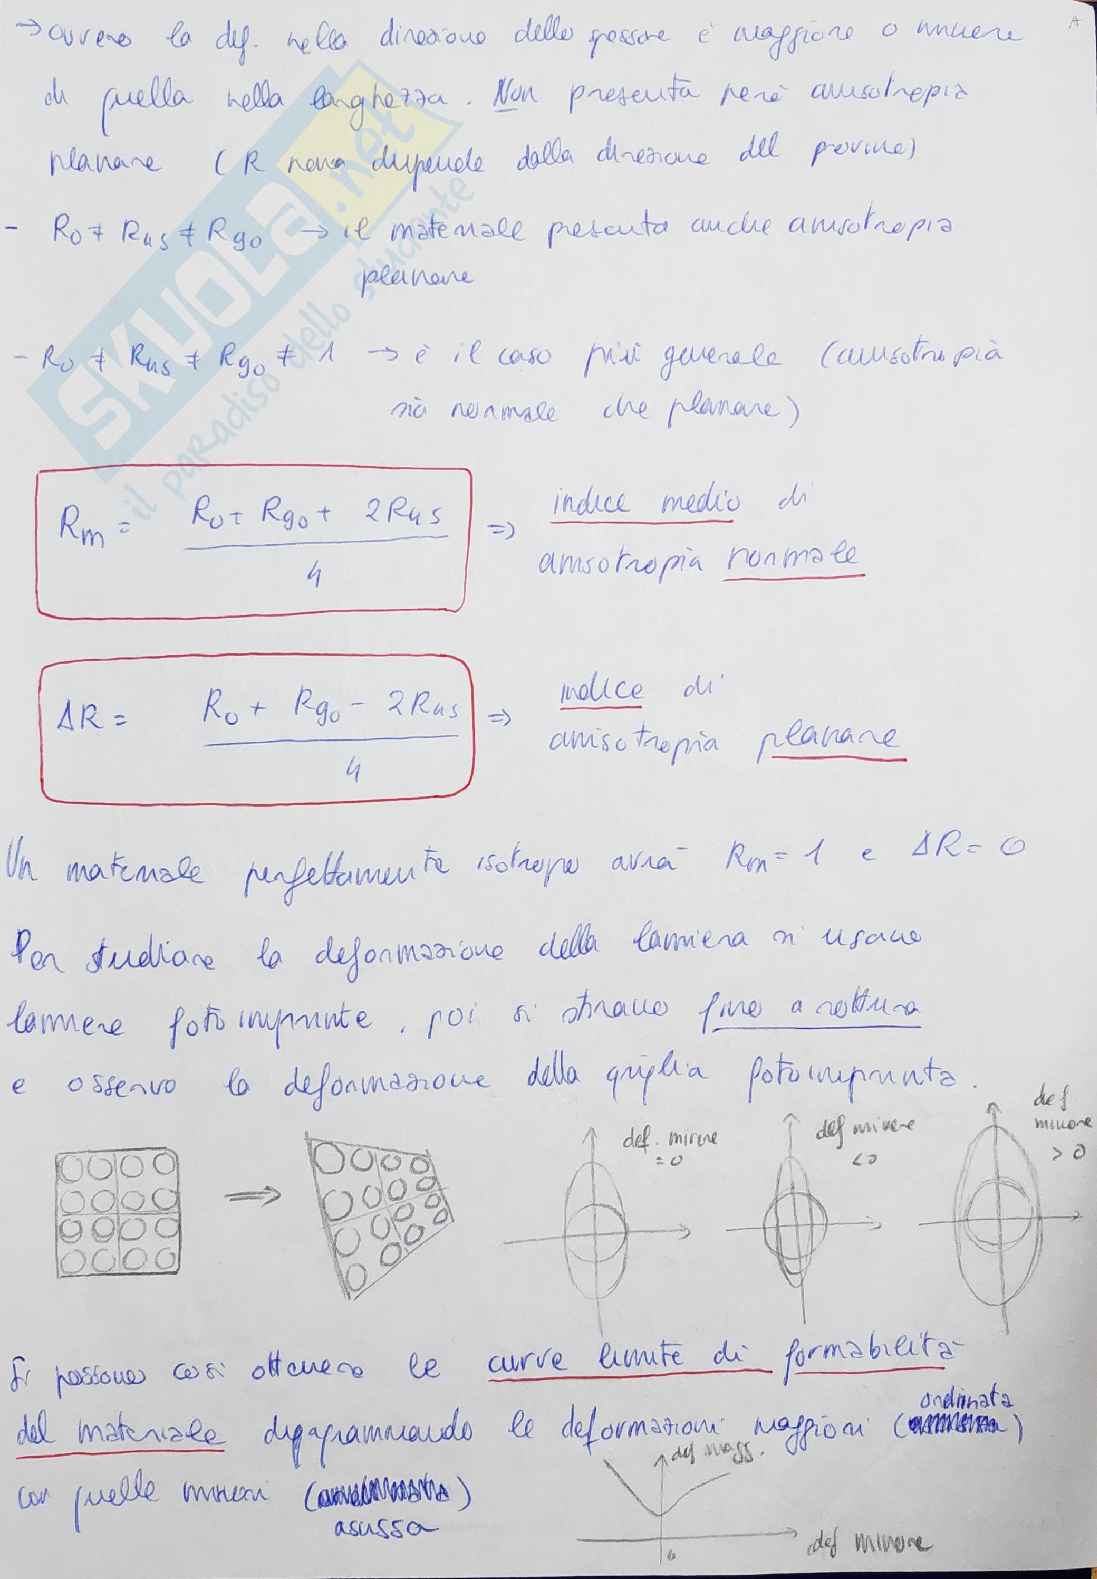 → ovvero la def. nella direzione dello spessore è maggiore o minore
di quella nella larghezza. Non presenta però anisotropia
planare (R non dipende dalla direzione del provino)
- R0 ≠ R45 ≠ R90 → il materiale presenta anche anisotropia
planare
- R0 ≠ R45 ≠ R90 ≠ 1 → è il caso più generale (anisotropia
sia normale che planare)
Rm = (R0 + R90 + 2R45) / 4 ⇒ indice medio di
anisotropia normale
ΔR = (R0 + R90 - 2R45) / 4 ⇒ indice di
anisotropia planare
Un materiale perfettamente isotropo avrà Rm = 1 e ΔR = 0
Per studiare la deformazione della lamiera si usano
lamiere fotoimprinte, poi si stirano fino a rottura
e osservo la deformazione della griglia fotoimprinta.
⇒
def. minore
= 0
def minore
< 0
def
minore
> 0
Si possono così ottenere le curve limite di formabilità
ordinata
del materiale diagrammando le deformazioni maggiori ( )
con quelle minori ( )
ascissa
def magg.
def minore
0
A
SKUOLA.net
il paradiso dello studente